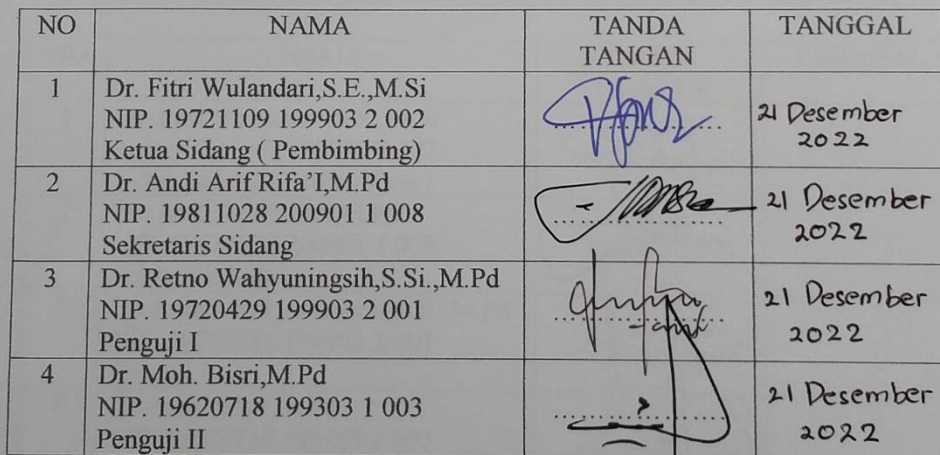 NO NAMA TANDA TANGAN TANGGAL
1 Dr. Fitri Wulandari,S.E.,M.Si
NIP. 19721109 199903 2 002
Ketua Sidang ( Pembimbing)
21 Desember
2022
2 Dr. Andi Arif Rifa'I,M.Pd
NIP. 19811028 200901 1 008
Sekretaris Sidang
21 Desember
2022
3 Dr. Retno Wahyuningsih,S.Si.,M.Pd
NIP. 19720429 199903 2 001
Penguji I
21 Desember
2022
4 Dr. Moh. Bisri,M.Pd
NIP. 19620718 199303 1 003
Penguji II
21 Desember
2022